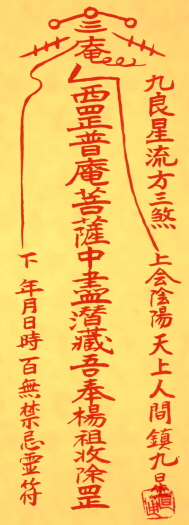 三
庵
九良星流方三煞
上会陰陽天上人間鎮九星
西罡普庵菩薩中盡潛藏吾奉楊祖收除罡
下 年月日時百無禁忌霊符